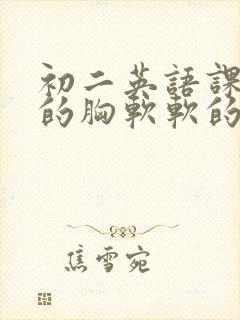 初二英語課
的胸軟軟的
焦雪宛